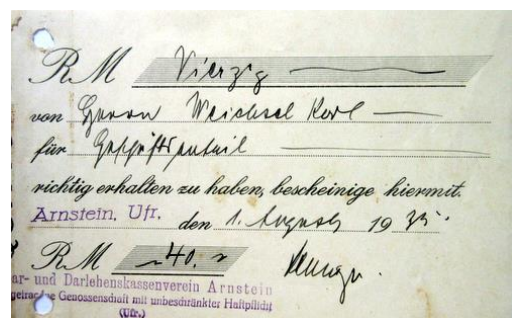 RM Vierzig
von Herrn Weichsel Karl
für Geschäftsanteil
richtig erhalten zu haben, bescheinige hiermit.
Arnstein, Ufr. den 1. August 1935.
RM 40.
ar- und Darlehenskassenverein Arnstein
getragene Genossenschaft mit unbeschränkter Haftpflicht
(Ufr.)